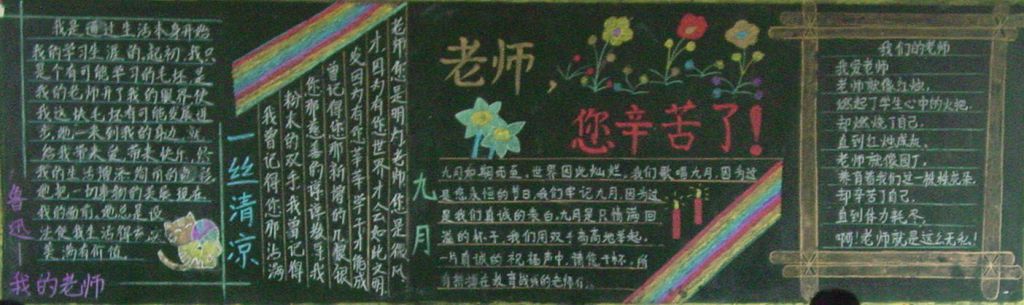 我是通过生活本身开始
我的学习生涯的,起初,我只
是个有可能学习的毛坯,是
我的老师开了我的眼界,使
我这块毛坯有可能发展进
步,她一来到我的身边,就
给我带来爱,带来快乐,给
我的生活增添绚丽的色彩
她把一切事物的美展现在
我的面前,她总是设
法使我生活得有
美满有价值。
鲁迅
我的老师
一丝清凉
老师您是明灯,老师,您是微风
才,因为有您,世界才会如此文明
我曾记得您那沾满
粉末的双手,我曾记得
您那慈善的谆谆教导,我
曾记得您那新增的几根银
九月
老师,
您辛苦了!
九月如期而至,世界因此灿烂,我们歌唱九月,因为这
是您永恒的节日,我们牢记九月,因为这
是我们真诚的表白,九月是只情满回
溢的杯子,我们用双手高高地举起,
一片真诚的祝福声中,请您干杯,所
有耕耘在教育战线的老师们。
我们的老师
我爱老师
老师就像红烛,
燃起了学生心中的火把,
却燃烧了自己,
直到红烛成灰。
老师就像园丁,
养育着我们这一棵棵花朵,
却辛苦了自己,
直到体力耗尽。
啊!老师就是这么无私!